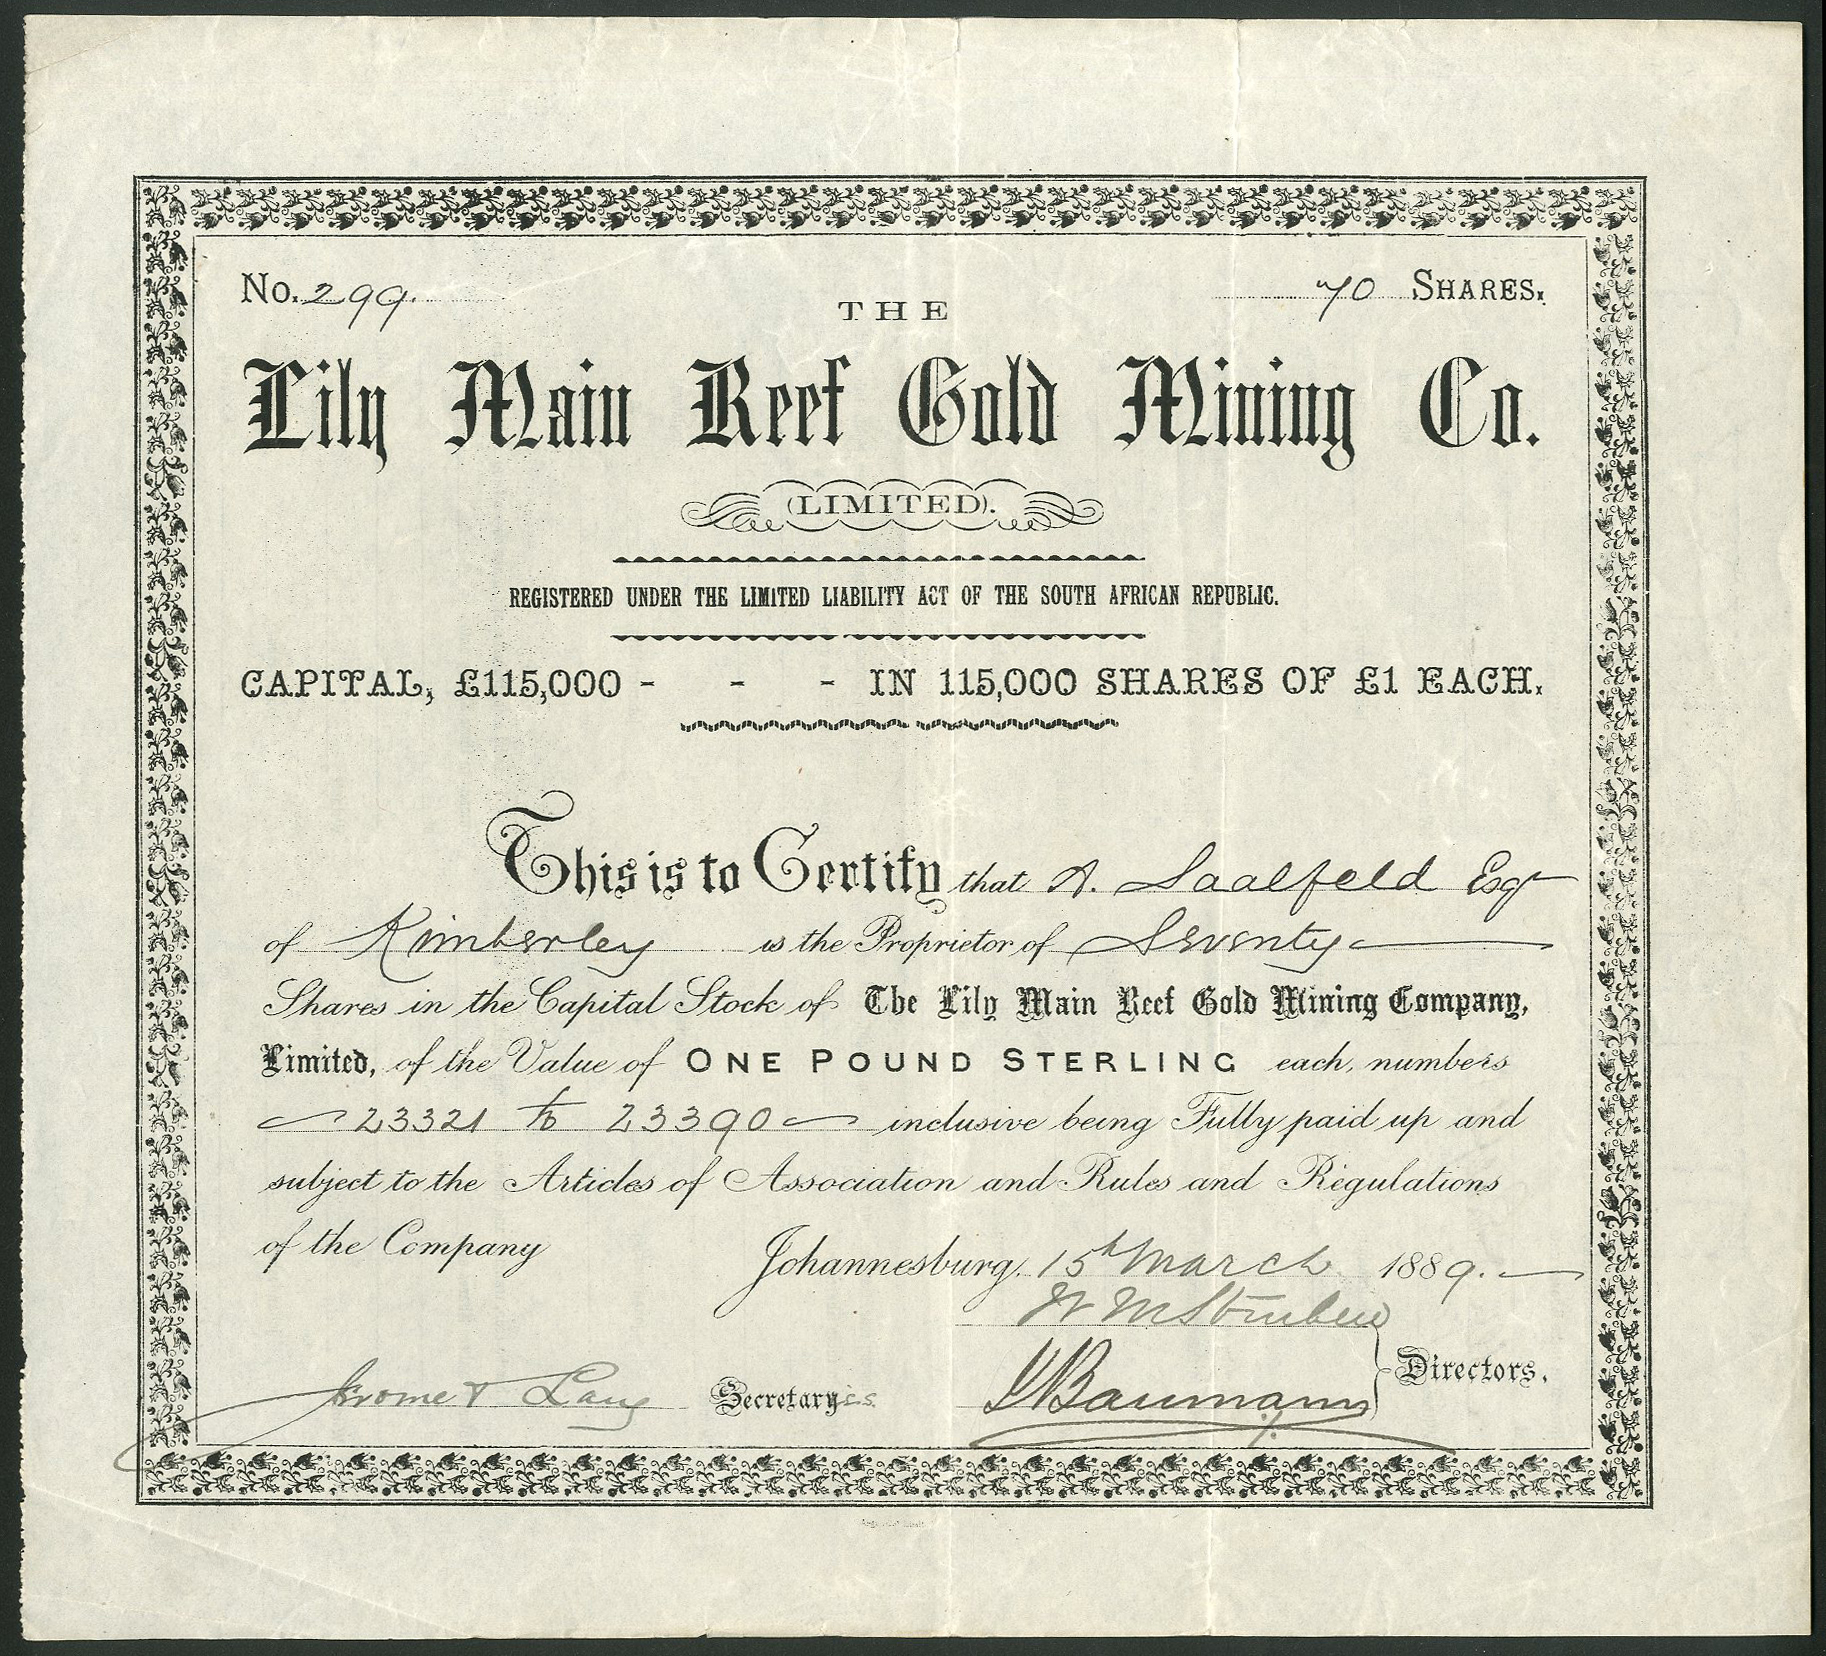 No. 299. 70 SHARES.
THE
Lily Main Reef Gold Mining Co.
(LIMITED).
REGISTERED UNDER THE LIMITED LIABILITY ACT OF THE SOUTH AFRICAN REPUBLIC.
CAPITAL, £115,000 - - - IN 115,000 SHARES OF £1 EACH.
This is to Certify that A. Saalfeld Esqr
of Kimberley is the Proprietor of Seventy
Shares in the Capital Stock of The Lily Main Reef Gold Mining Company,
Limited, of the Value of ONE POUND STERLING each, numbers
23321 to 23390 inclusive being Fully paid up and
subject to the Articles of Association and Rules and Regulations
of the Company
Johannesburg, 15th March 1889.
Jerome & Lang Secretary
Baumann Directors.